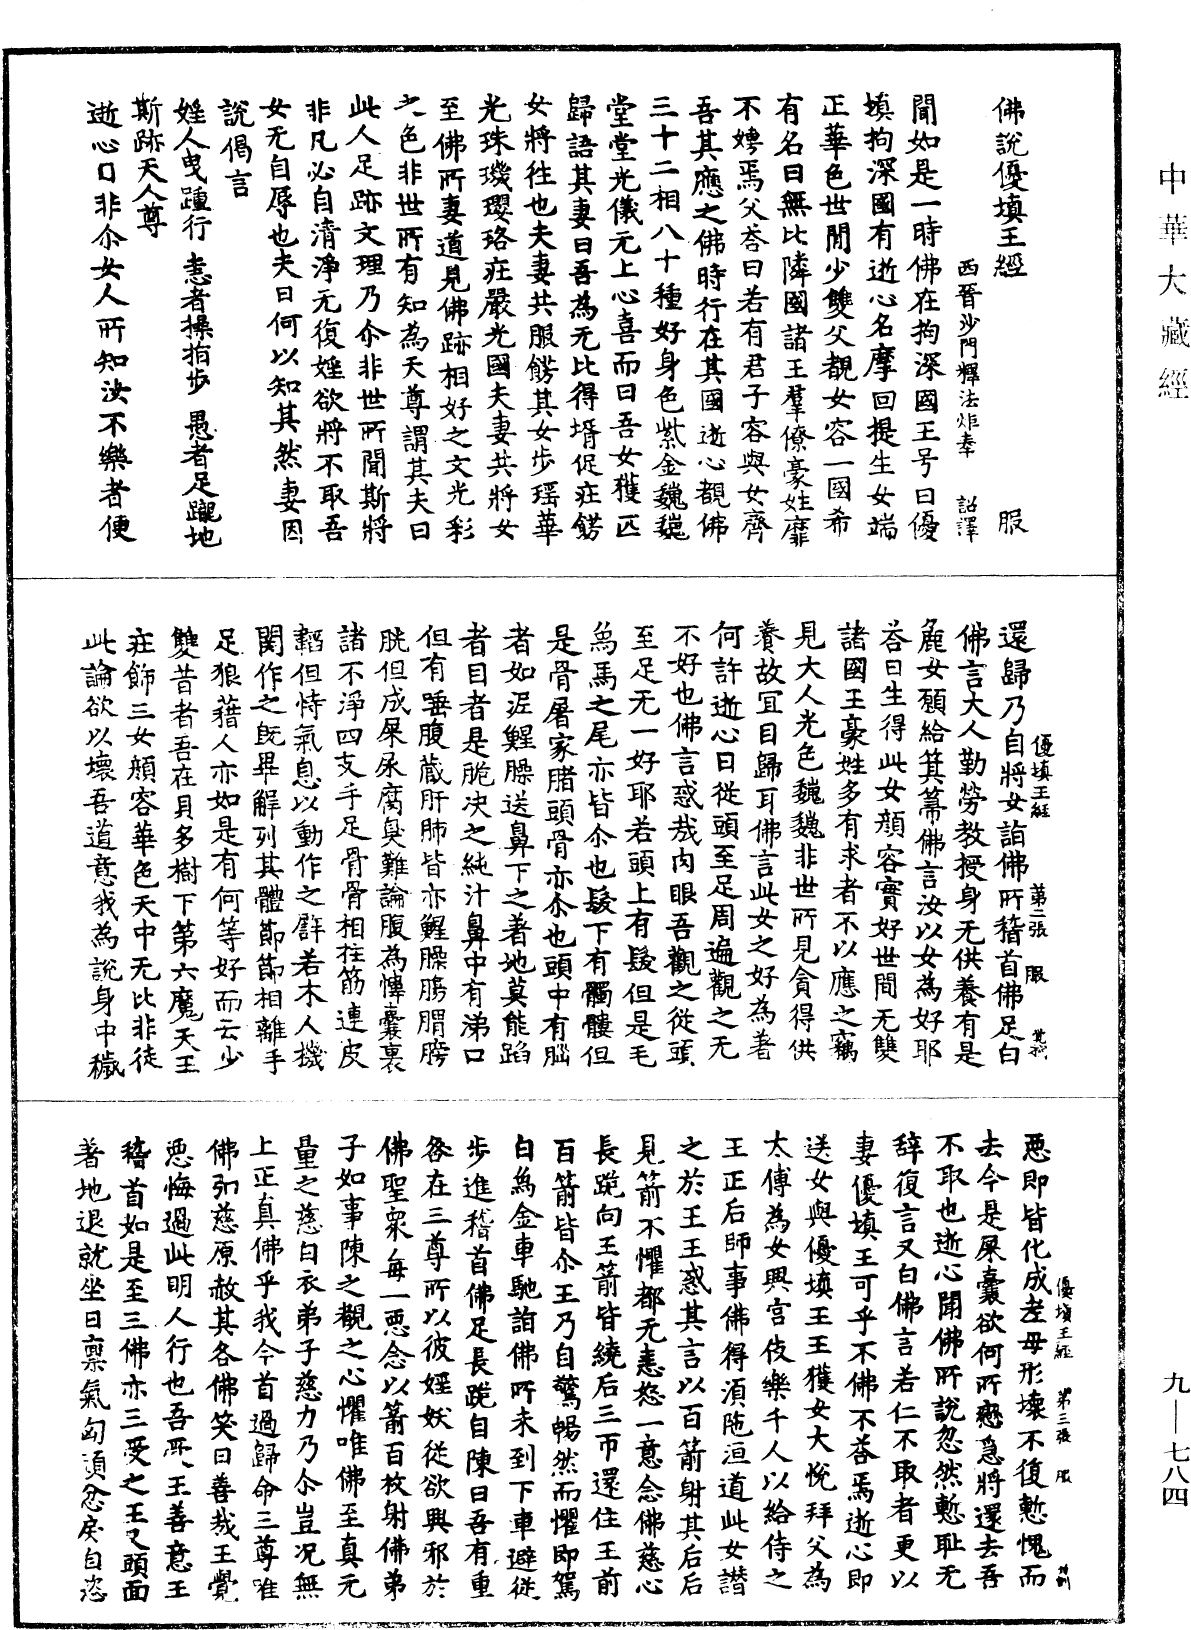 中華大藏經
佛說優填王經　服
西晉沙門釋法炬奉　詔譯
聞如是一時佛在拘深國王号曰優
填拘深國有逝心名摩回提生女端
正華色世間少雙父覩女容一國希
有名曰無比隣國諸王羣僚豪姓靡
不娉焉父荅曰若有君子容與女齊
吾其應之佛時行在其國逝心覩佛
三十二相八十種好身色紫金巍巍
堂堂光儀无上心喜而曰吾女獲匹
歸語其妻曰吾為无比得壻促莊餝
女將往也夫妻共服餝其女步瑶華
光珠璣瓔珞莊嚴光國夫妻共將女
至佛所妻道見佛跡相好之文光彩
之色非世所有知為天尊謂其夫曰
此人足跡文理乃尒非世所聞斯將
非凡必自清淨无復婬欲將不取吾
女无自辱也夫曰何以知其然妻因
說偈言
婬人曳踵行　恚者操指步　愚者足躐地
斯跡天人尊
逝心曰非尒女人所知汝不樂者便
優填王經　第二張　服
還歸乃自將女詣佛所稽首佛足白
佛言大人勤勞教授身无供養有是
麁女願給箕箒佛言汝以女為好耶
荅曰生得此女顏容實好世間无雙
諸國王豪姓多有求者不以應之竊
見大人光色巍巍非世所見貪得供
養故冝自歸耳佛言此女之好為著
何許逝心曰從頭至足周遍觀之无
不好也佛言惑哉肉眼吾觀之從頭
至足无一好耶若頭上有髮但是毛
為馬之尾亦皆尒也髮下有髑髏但
是骨屠家豬頭骨亦尒也頭中有腦
者如泥鯹臊送鼻下之著地莫能蹈
者目者是脆決之純汁鼻中有涕口
但有唾腹藏肝肺皆亦鯹臊腸胃膀
胱但成屎尿腐臭難論腹為慱囊裹
諸不淨四支手足骨骨相拄筋連皮
韜但恃氣息以動作之辟若木人機
関作之既畢解列其體節節相離手
足狼藉人亦如是有何等好而云少
雙昔者吾在貝多樹下第六魔天王
莊飾三女顏容華色天中无比非徒
此論欲以壞吾道意我為說身中穢
優填王經　第三張　服
惡即皆化成老母形壞不復慙愧而
去今是屎囊欲何所為將還去吾
不取也逝心聞佛所說忽然慙耻无
辭復言又白佛言若仁不取者更以
妻優填王可乎不佛不荅焉逝心即
送女與優填王王獲女大悅拜父為
太傅為女興宮伎樂千人以給侍之
王正后師事佛得湏陁洹道此女譖
之於王王惑其言以百箭射其后后
見箭不懼都无恚怒一意念佛慈心
長跪向王箭皆繞后三帀還住王前
百箭皆尒王乃自驚暢然而懼即駕
白為金車馳詣佛所未到下車避從
步進稽首佛足長跪自陳曰吾有重
咎在三尊所以彼婬妖從欲興邪於
佛聖衆每一惡念以箭百枚射佛弟
子如事陳之觀之心懼唯佛至真无
量之慈白衣弟子慈力乃尒豈况無
上正真佛乎我今首過歸命三尊唯
佛弘慈原赦其各佛笑曰善哉王覺
惡悔過此明人行也吾受王善意王
稽首如是至三佛亦三受之王又頭面
著地退就坐曰禀氣匈頑忿戾自恣
九—七八四